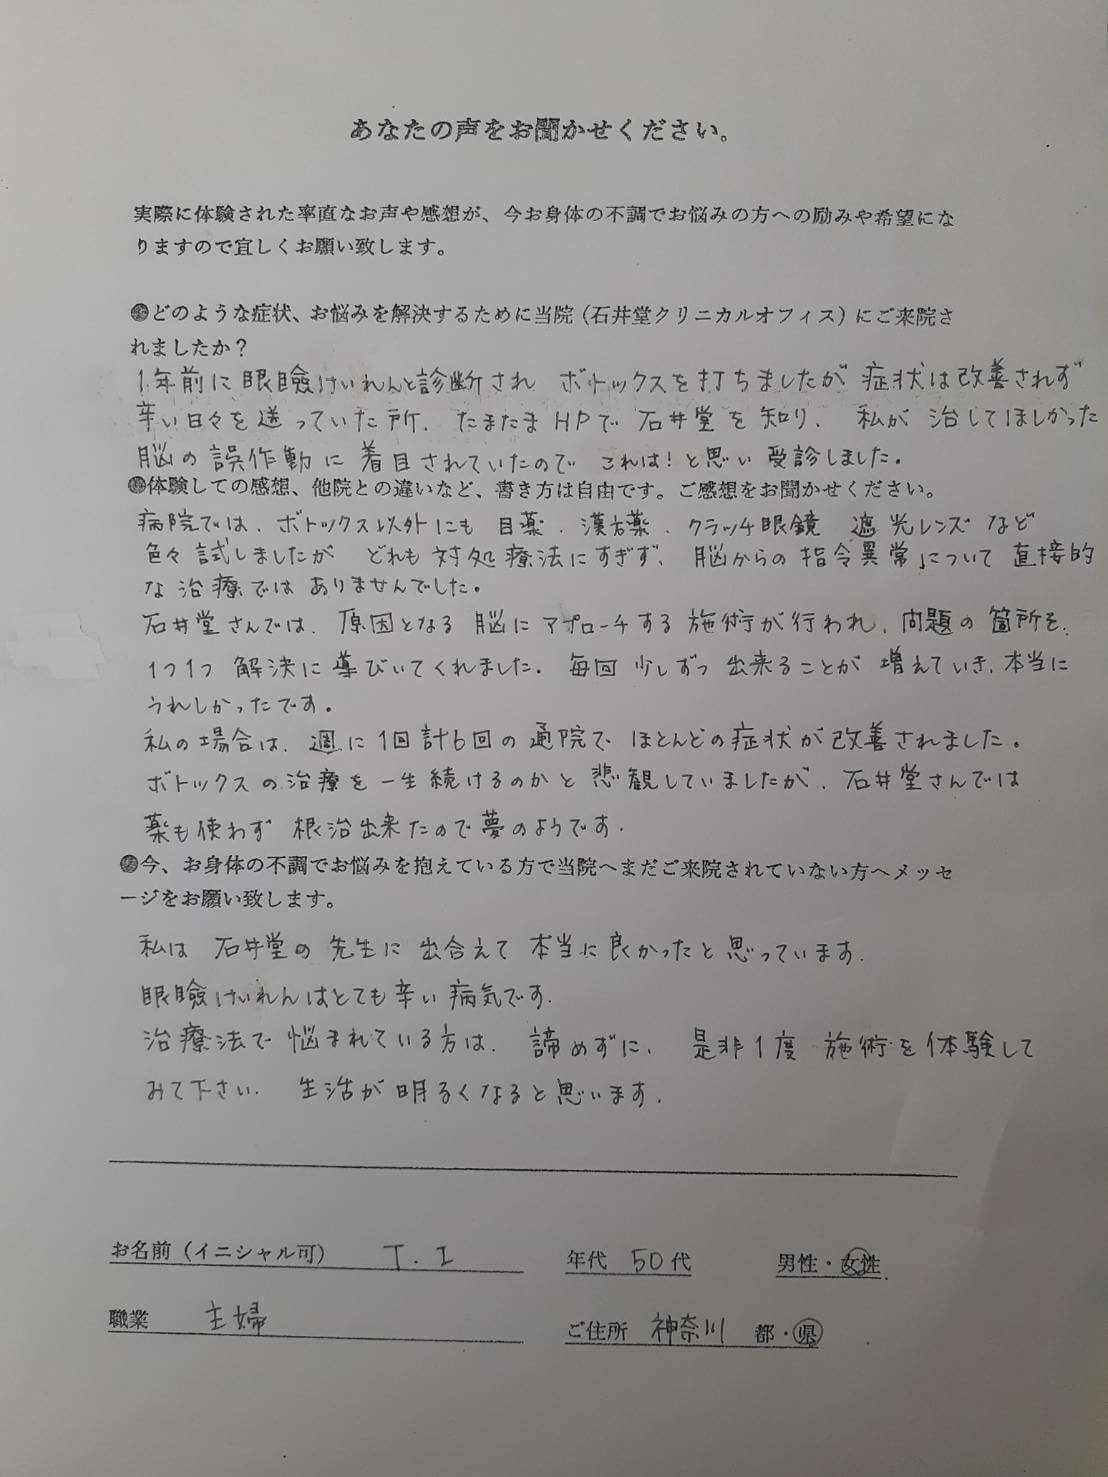 あなたの声をお聞かせください。
実際に体験された率直なお声や感想が、今お身体の不調でお悩みの方への励みや希望にな
りますので宜しくお願い致します。
●どのような症状、お悩みを解決するために当院（石井堂クリニカルオフィス）にご来院さ
れましたか？
1年前に眼瞼けいれんと診断され ボトックスを打ちましたが 症状は改善されず
辛い日々を送っていた所、たまたまHPで 石井堂を知り、 私が 治してほしかった
脳の誤作動に着目されていたので これは！と思い受診しました。
●体験しての感想、他院との違いなど、書き方は自由です。ご感想をお聞かせください。
病院では、ボトックス以外にも 目薬、漢方薬、クラッチ眼鏡 遮光レンズなど
色々試しましたが どれも対処療法にすぎず、脳からの指令異常について直接的
な治療ではありませんでした。
石井堂さんでは、原因となる脳にアプローチする施術が行われ、問題の箇所を、
1つ1つ 解決に導びいてくれました。毎回 少しずつ 出来ることが 増えていき、本当に
うれしかったです。
私の場合は、週に1回計6回の通院で ほとんどの症状が改善されました。
ボトックスの治療を一生続けるのかと悲観していましたが、石井堂さんでは
薬も使わず 根治出来たので夢のようです。
●今、お身体の不調でお悩みを抱えている方で当院へまだご来院されていない方へメッセ
ージをお願い致します。
私は 石井堂の先生に 出合えて 本当に良かったと思っています。
眼瞼けいれんはとても辛い病気です。
治療法で悩まれている方は、諦めずに、是非1度 施術を体験して
みて下さい。 生活が明るくなると思います。
お名前（イニシャル可） T.I 年代 50代 男性・女性
職業 主婦 ご住所 神奈川 都・県